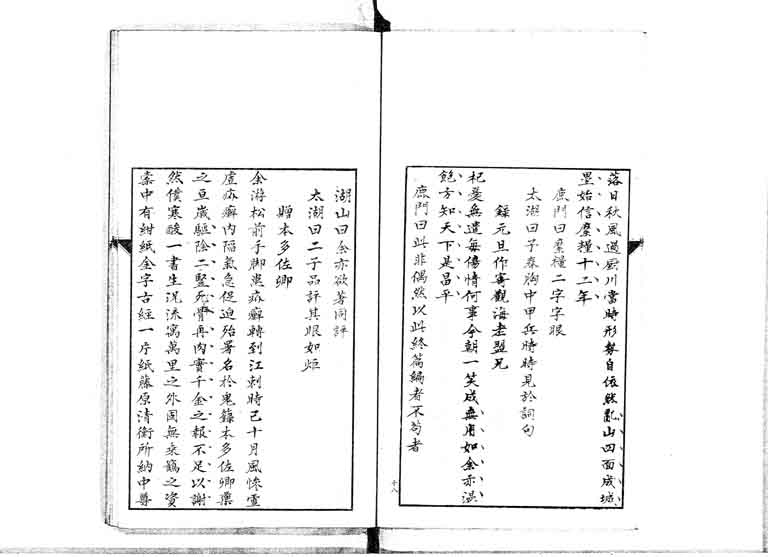 落日秋風過厨川當時形勢自依然亂山四面成城
壘始信糜糧十二年
鹿門曰糜糧二字字眼
太湖曰子春胸中甲兵時時見於詞句
録元旦作寄觀海老盟兄
杞憂無遣每傷情何事今朝一笑成無用如余亦温
飽方知天下是昌平
鹿門曰此非偶然以此終篇編者不苟者
十八
湖山曰余亦欲著同評
太湖曰二子品評其眼如炬
贈本多佐卿
余游松前手脚患疥癬轉到江刺時已十月風慘雪
虐疥癬内陥氣急促迫殆署名於鬼籙本多佐卿藥
之亘歲驅除二竪死骨再肉實千金之報不足以謝
然儐寒酸一書生況流寓萬里之外固無乘鷁之資
橐中有紺紙金字古經一序紙藤原清衡所納中尊